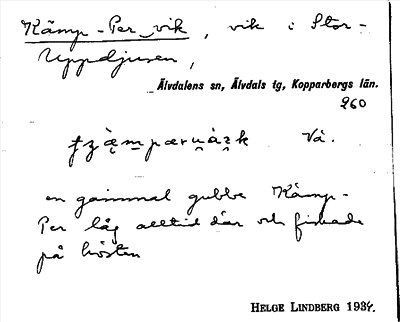 Kämp-Per_vik, vik i Stor-
Uppdjusen,
Älvdalens sn, Älvdals tg, Kopparbergs län.
260
Vä.
en gammal gubbe Kämp-
Per låg alltid där och fiskade
på hösten
HELGE LINDBERG 1934.